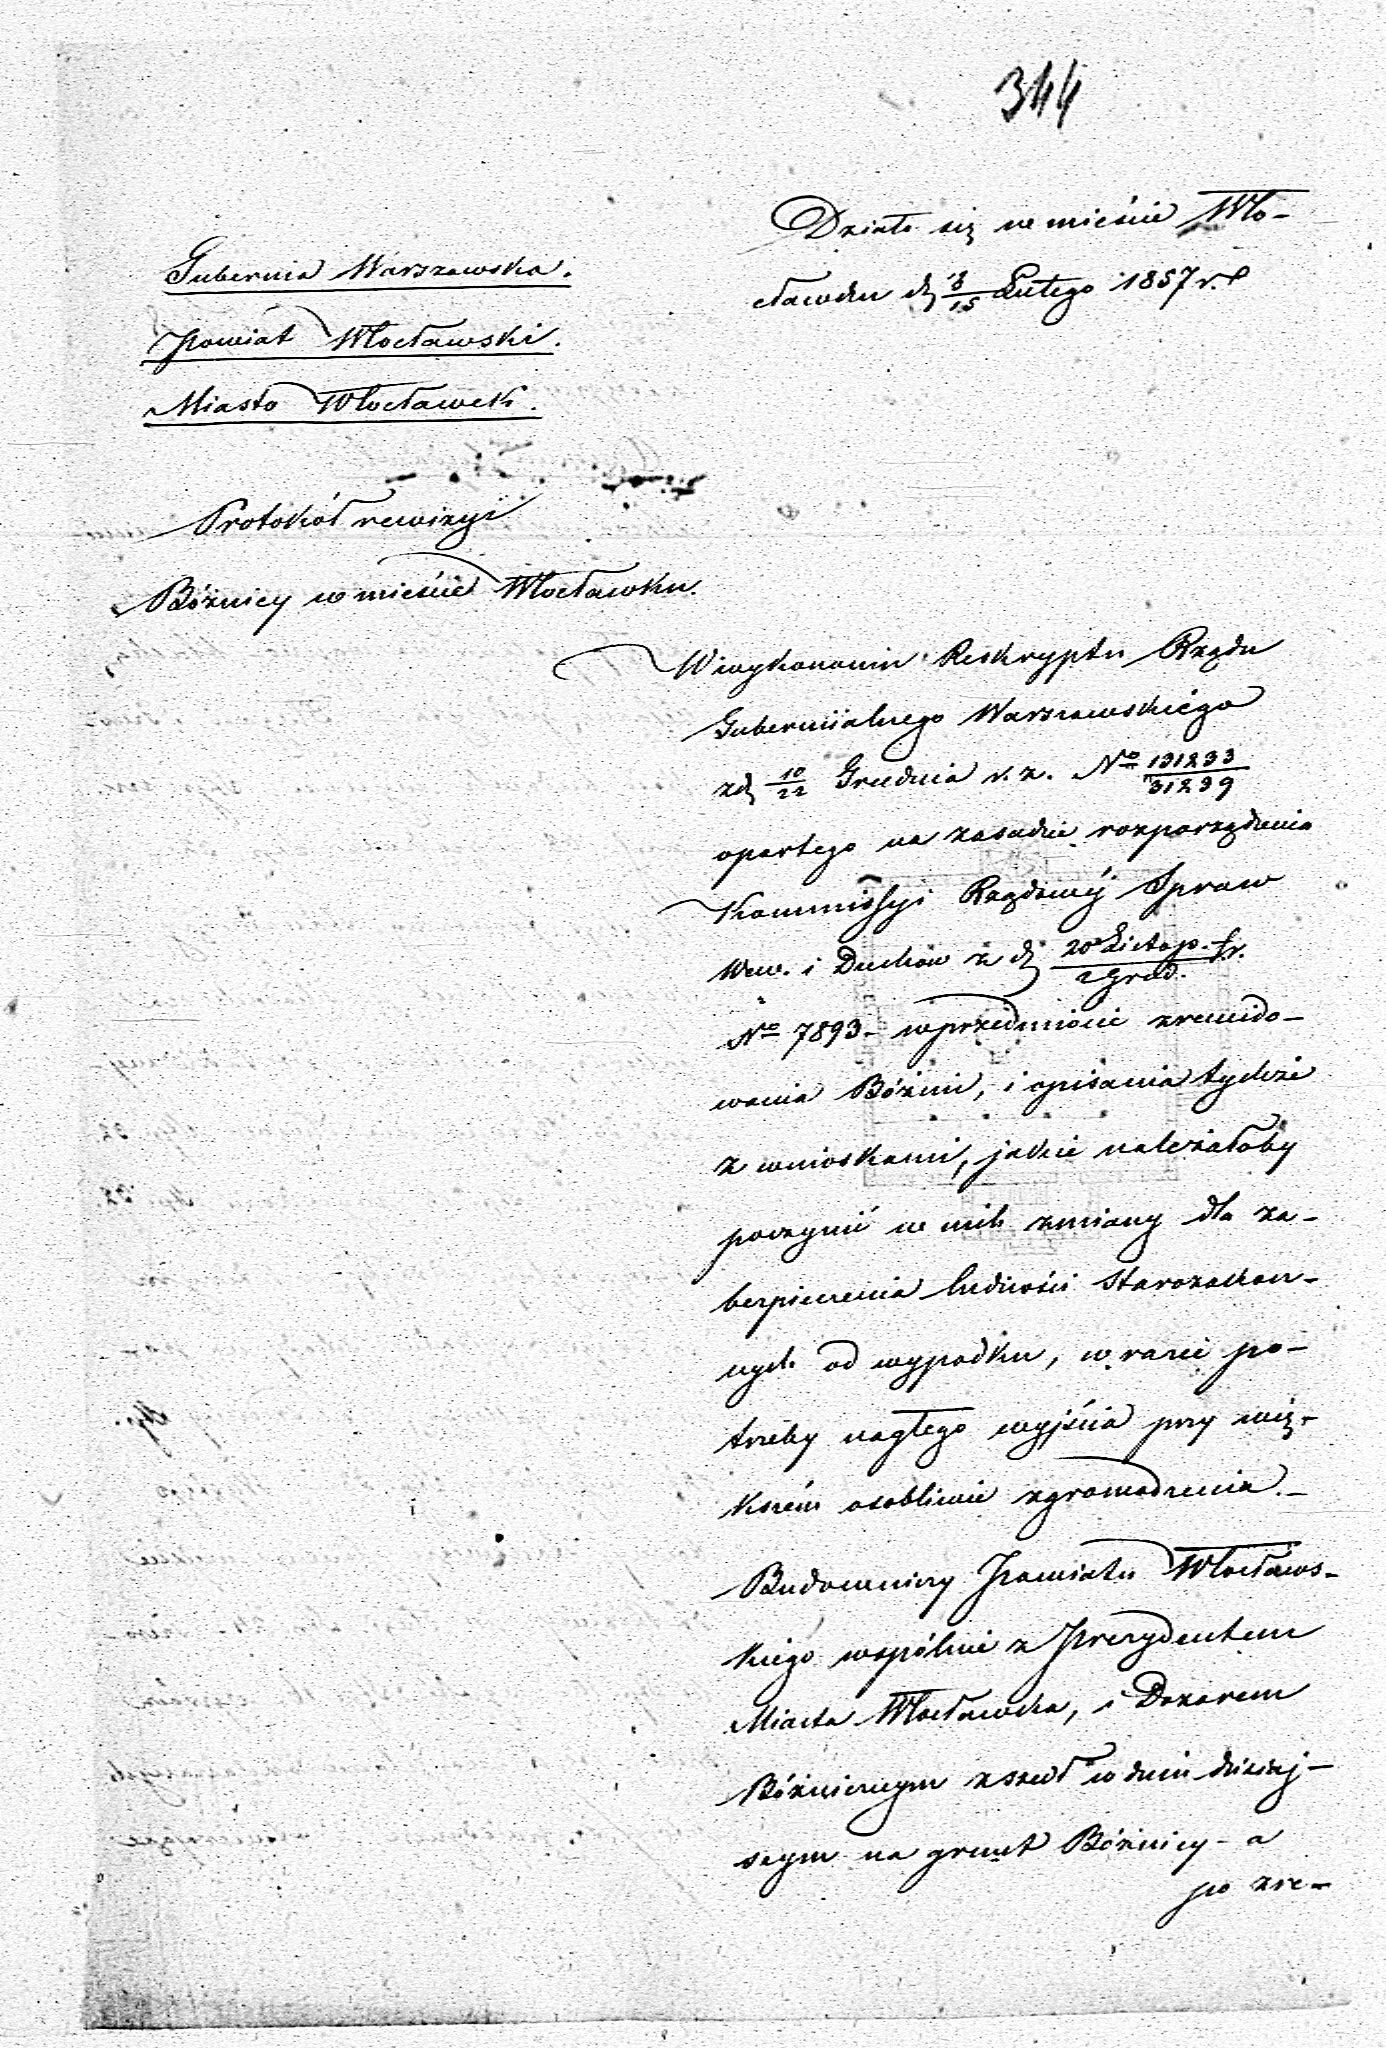 344
Działo się w mieście Wło-
cławku d. 3/15 Lutego 1857 r.
Gubernia Warszawska.
Powiat Włocławski.
Miasto Włocławek.
Protokół rewizyi
Bóżnicy w mieście Włocławku.
W wykonaniu Reskryptu Rządu
Gubernialnego Warszawskiégo
z d. 10/22 Grudnia r. z. No 131233/31239
opartego na zasadzie rozporządzenia
Kommissyi Rządowéj Spraw
Wew. i Duchow z d. 20 Listop./2 Grud. t. r.
No 7893 - w przedmiocie zrewido-
wania Bóżnic, i opisania tychże
z wnioskami, jakie należałoby
poczynić w nich zmiany dla za-
bezpieczenia ludności Starozakon-
nych od wypadku, w razie po-
trzeby nagłego wyjścia przy wię-
kszém osobliwie zgromadzenia. -
Budowniczy Powiatu Włocławs-
kiego wspólnie z Prezydentem
Miasta Włocławka, i Dozorem
Bóżniczym zszedł w dniu dzisiej-
szym na grunt Bóżnicy - a
po zre-